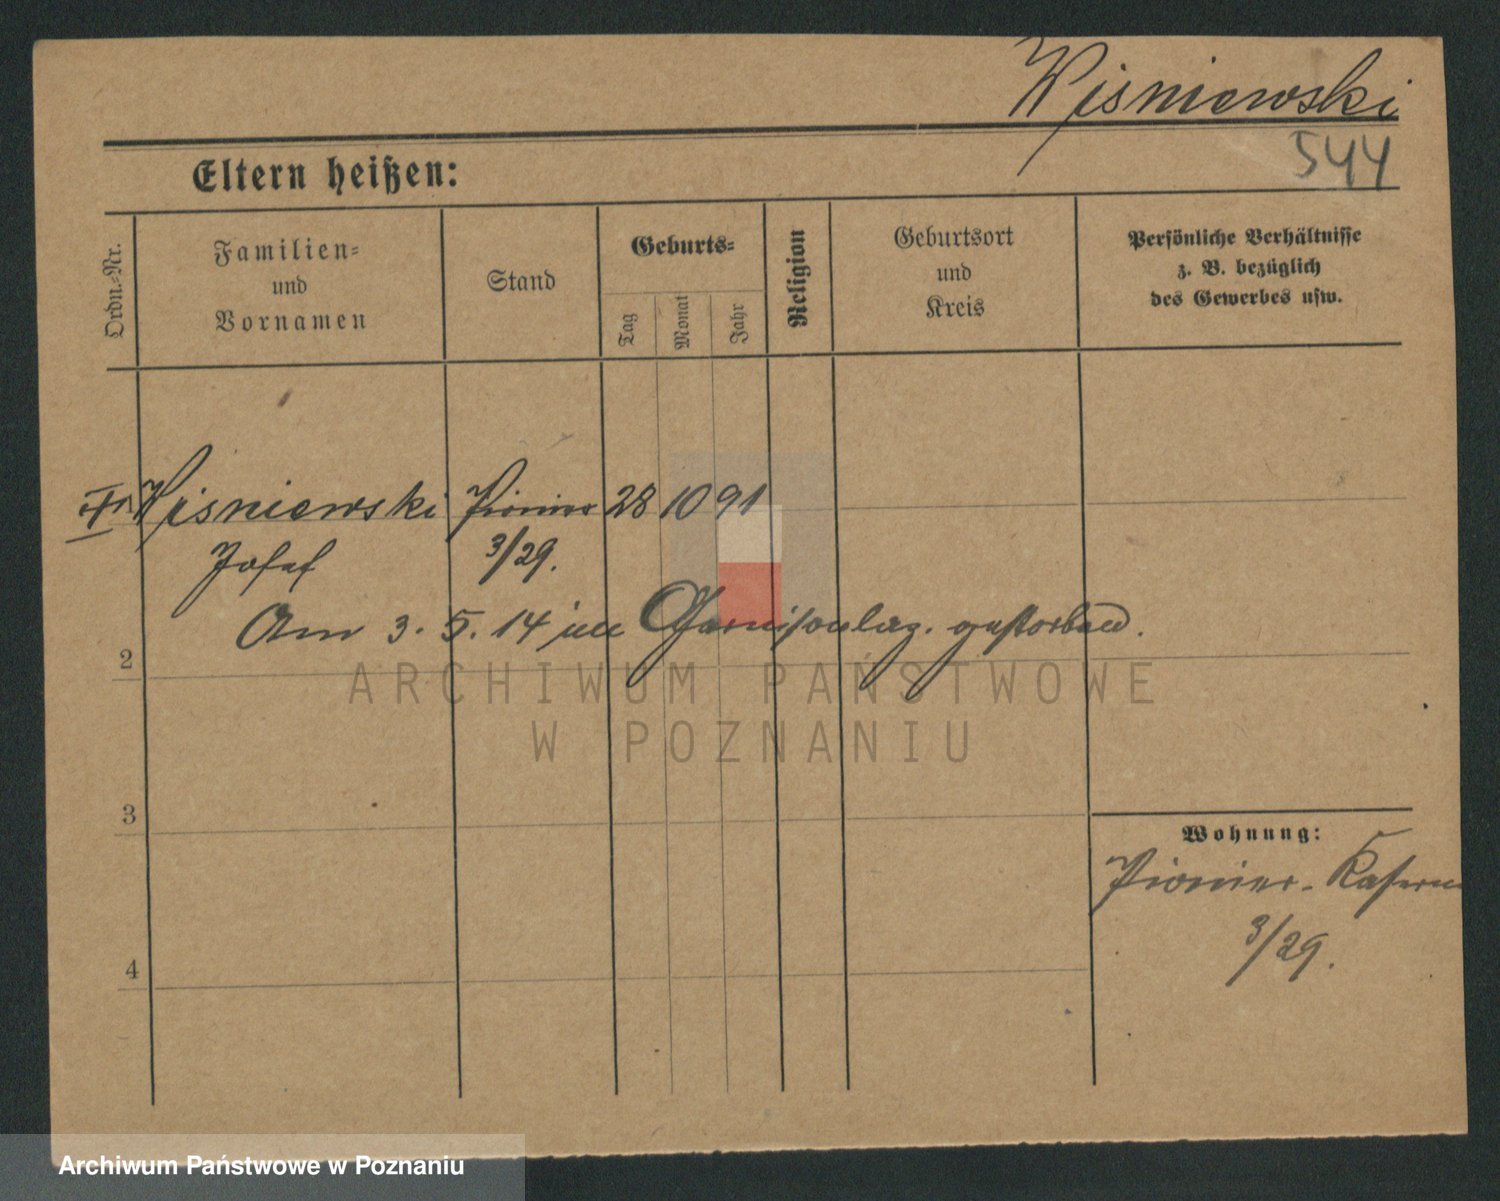 Wisniewski
544
Eltern heißen:
Ordn.-Nr.
Familien-
und
Vornamen
Stand
Geburts-
Tag
Monat
Jahr
Religion
Geburtsort
und
Kreis
Persönliche Verhältnisse
z. B. bezüglich
des Gewerbes usw.
Wisniewski Pionier 28 10 91
Josef 3/29.
Am 3. 5. 14 im Garnisonlaz. gestorben.
2
ARCHIWUM PAŃSTWOWE
W POZNANIU
3
Wohnung:
Pionier-Kasern
3/29.
4
Archiwum Państwowe w Poznaniu